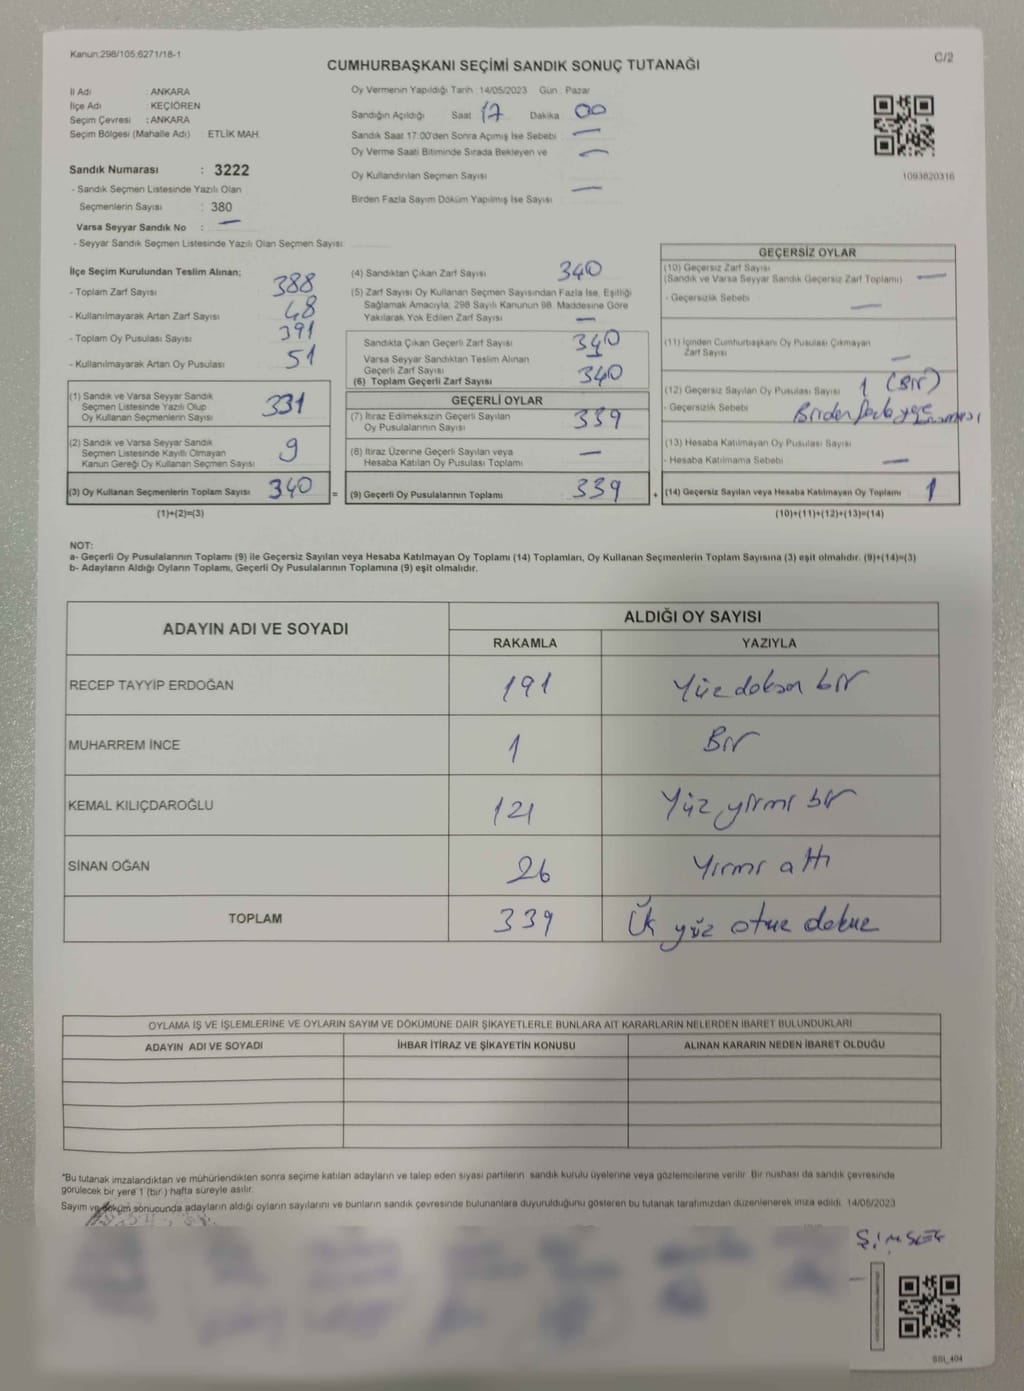 Kanun:298/105;6271/18-1
C/2
CUMHURBAŞKANI SEÇİMİ SANDIK SONUÇ TUTANAĞI
İl Adı : ANKARA
İlçe Adı : KEÇİÖREN
Seçim Çevresi : ANKARA
Seçim Bölgesi (Mahalle Adı) : ETLİK MAH.
Sandık Numarası : 3222
- Sandık Seçmen Listesinde Yazılı Olan
Seçmenlerin Sayısı : 380
Varsa Seyyar Sandık No : —
- Seyyar Sandık Seçmen Listesinde Yazılı Olan Seçmen Sayısı:
Oy Vermenin Yapıldığı Tarih : 14/05/2023 Gün : Pazar
Sandığın Açıldığı Saat 17 Dakika 00
Sandık Saat 17:00'den Sonra Açımış İse Sebebi —
Oy Verme Saati Bitiminde Sırada Bekleyen ve —
Oy Kullandırılan Seçmen Sayısı
Birden Fazla Sayım Döküm Yapılmış İse Sayısı —
1093820316
İlçe Seçim Kurulundan Teslim Alınan;
- Toplam Zarf Sayısı 388
- Kullanılmayarak Artan Zarf Sayısı 48
- Toplam Oy Pusulası Sayısı 391
- Kullanılmayarak Artan Oy Pusulası 51
(1) Sandık ve Varsa Seyyar Sandık
Seçmen Listesinde Yazılı Olup
Oy Kullanan Seçmenlerin Sayısı 331
(2) Sandık ve Varsa Seyyar Sandık
Seçmen Listesinde Kayıtlı Olmayan
Kanun Gereği Oy Kullanan Seçmen Sayısı 9
(3) Oy Kullanan Seçmenlerin Toplam Sayısı 340 =
(1)+(2)=(3)
(4) Sandıktan Çıkan Zarf Sayısı 340
(5) Zarf Sayısı Oy Kullanan Seçmen Sayısından Fazla İse, Eşitliği
Sağlamak Amacıyla, 298 Sayılı Kanunun 98. Maddesine Göre
Yakılarak Yok Edilen Zarf Sayısı —
Sandıkta Çıkan Geçerli Zarf Sayısı 340
Varsa Seyyar Sandıktan Teslim Alınan
Geçerli Zarf Sayısı
(6) Toplam Geçerli Zarf Sayısı 340
GEÇERLİ OYLAR
(7) İtiraz Edilmeksizin Geçerli Sayılan
Oy Pusulalarının Sayısı 339
(8) İtiraz Üzerine Geçerli Sayılan veya
Hesaba Katılan Oy Pusulası Toplamı —
(9) Geçerli Oy Pusulalarının Toplamı 339 +
GEÇERSİZ OYLAR
(10) Geçersiz Zarf Sayısı
(Sandık ve Varsa Seyyar Sandık Geçersiz Zarf Toplamı) —
- Geçersizlik Sebebi —
(11) İçinden Cumhurbaşkanı Oy Pusulası Çıkmayan
Zarf Sayısı —
(12) Geçersiz Sayılan Oy Pusulası Sayısı 1 (Bir)
- Geçersizlik Sebebi Birden
(13) Hesaba Katılmayan Oy Pusulası Sayısı
- Hesaba Katılmama Sebebi —
(14) Geçersiz Sayılan veya Hesaba Katılmayan Oy Toplamı 1
(10)+(11)+(12)+(13)=(14)
NOT:
a- Geçerli Oy Pusulalarının Toplamı (9) ile Geçersiz Sayılan veya Hesaba Katılmayan Oy Toplamı (14) Toplamları, Oy Kullanan Seçmenlerin Toplam Sayısına (3) eşit olmalıdır. (9)+(14)=(3)
b- Adayların Aldığı Oyların Toplamı, Geçerli Oy Pusulalarının Toplamına (9) eşit olmalıdır.
ADAYIN ADI VE SOYADI
ALDIĞI OY SAYISI
RAKAMLA YAZIYLA
RECEP TAYYİP ERDOĞAN 191 Yüz doksan bir
MUHARREM İNCE 1 Bir
KEMAL KILIÇDAROĞLU 121 Yüz yirmi bir
SİNAN OĞAN 26 Yirmi altı
TOPLAM 339 Üç yüz otuz dokuz
OYLAMA İŞ VE İŞLEMLERİNE VE OYLARIN SAYIM VE DÖKÜMÜNE DAİR ŞİKAYETLERLE BUNLARA AİT KARARLARIN NELERDEN İBARET BULUNDUKLARI
ADAYIN ADI VE SOYADI İHBAR İTİRAZ VE ŞİKAYETİN KONUSU ALINAN KARARIN NEDEN İBARET OLDUĞU
*Bu tutanak imzalandıktan ve mühürlendikten sonra seçime katılan adayların ve talep eden siyasi partilerin sandık kurulu üyelerine veya gözlemcilerine verilir. Bir nushası da sandık çevresinde
görülecek bir yere 1 (bir) hafta süreyle asılır.
Sayım ve döküm sonucunda adayların aldığı oyların sayılarını ve bunların sandık çevresinde bulunanlara duyurulduğunu gösteren bu tutanak tarafımızdan düzenlenerek imza edildi. 14/05/2023
ŞİMŞEK
SSI_404